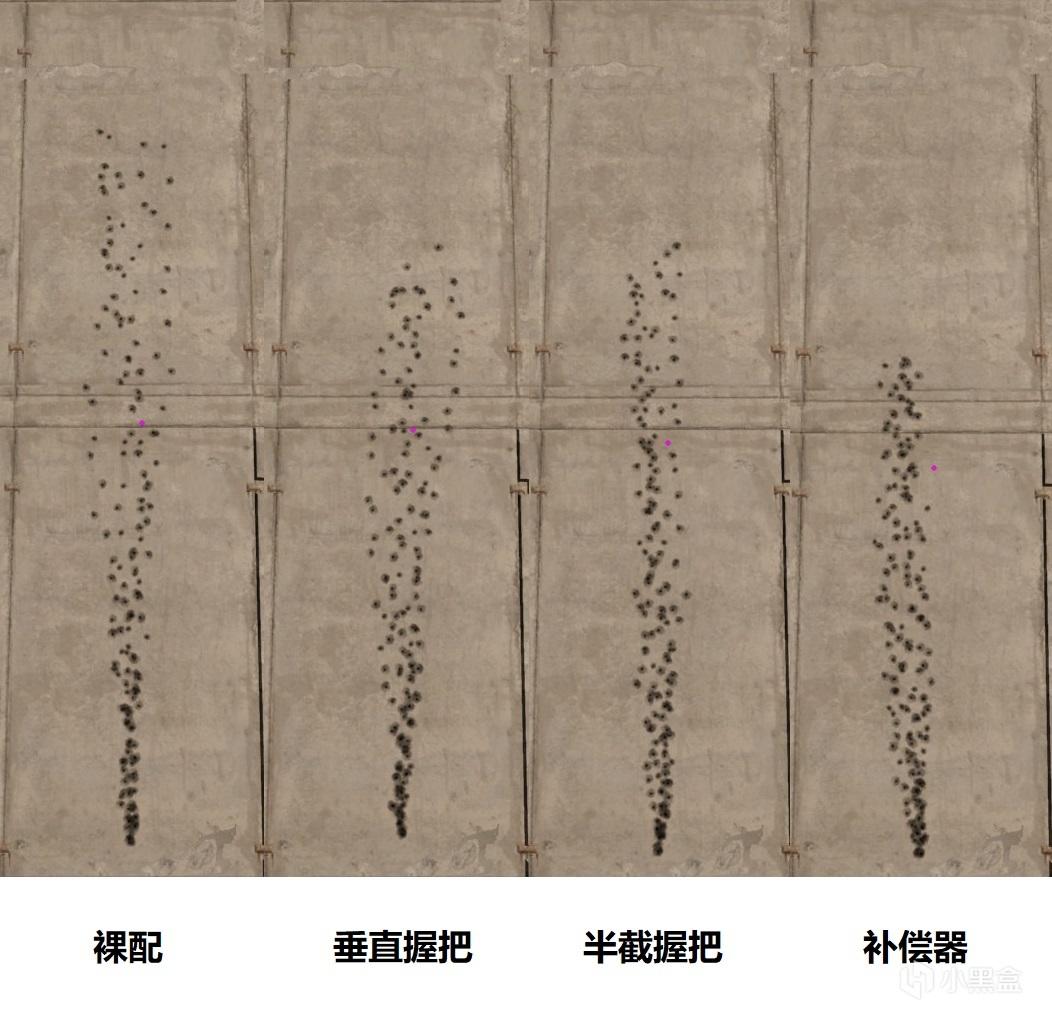 裸配
垂直握把
半截握把
补偿器
小黑盒